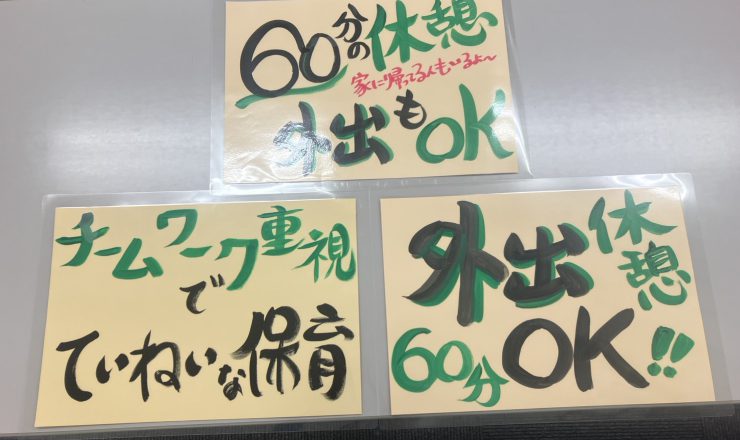 60分の休憩
家に帰ってる人もいるよ〜
外出もOK
チームワーク重視
で
ていねいな保育
外出休憩
60分OK!!